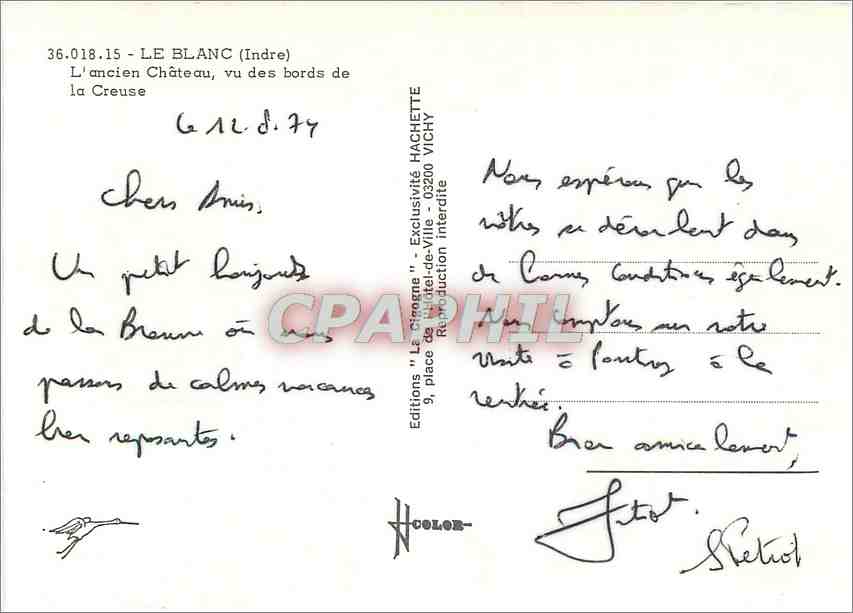 36.018.15 - LE BLANC (Indre)
L'ancien Château, vu des bords de
la Creuse
Le 12.8.74
Chers Amis,
Un petit bonjour
de la Brenne où nous
passons de calmes vacances
bien reposantes.
Editions " La Cigogne " - Exclusivité HACHETTE
9, place de l'Hôtel-de-Ville - 03200 VICHY
Reproduction interdite
Nous espérons que les
vôtres se déroulent dans
de bonnes conditions également.
Nous comptons sur votre
visite à à la
rentrée.
Bien amicalement,
Petrot
Petrot
COLOR
CPAPHIL